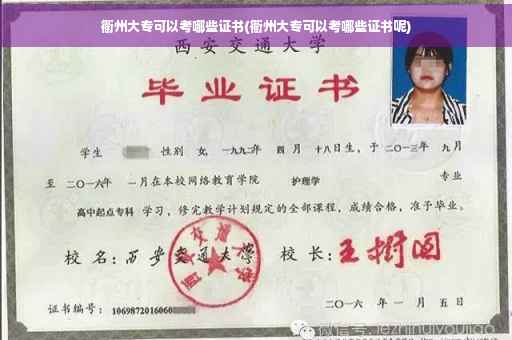 衢州大专可以考哪些证书(衢州大专可以考哪些证书呢)
西安交通大学
毕业证书
学生 性别 女,一九九二年 四月 十八日生,于二〇一三年 九月
至 二〇一六年 一月在本校网络教育学院 护理学 专业
高中起点专科 学习,修完教学计划规定的全部课程,成绩合格,准予毕业。
校名:西安交通大学 校长:王树国
西安交通大学
证书编号:1069872016060 二〇一六年一月五日
微信号:jezhihuiyoujiao